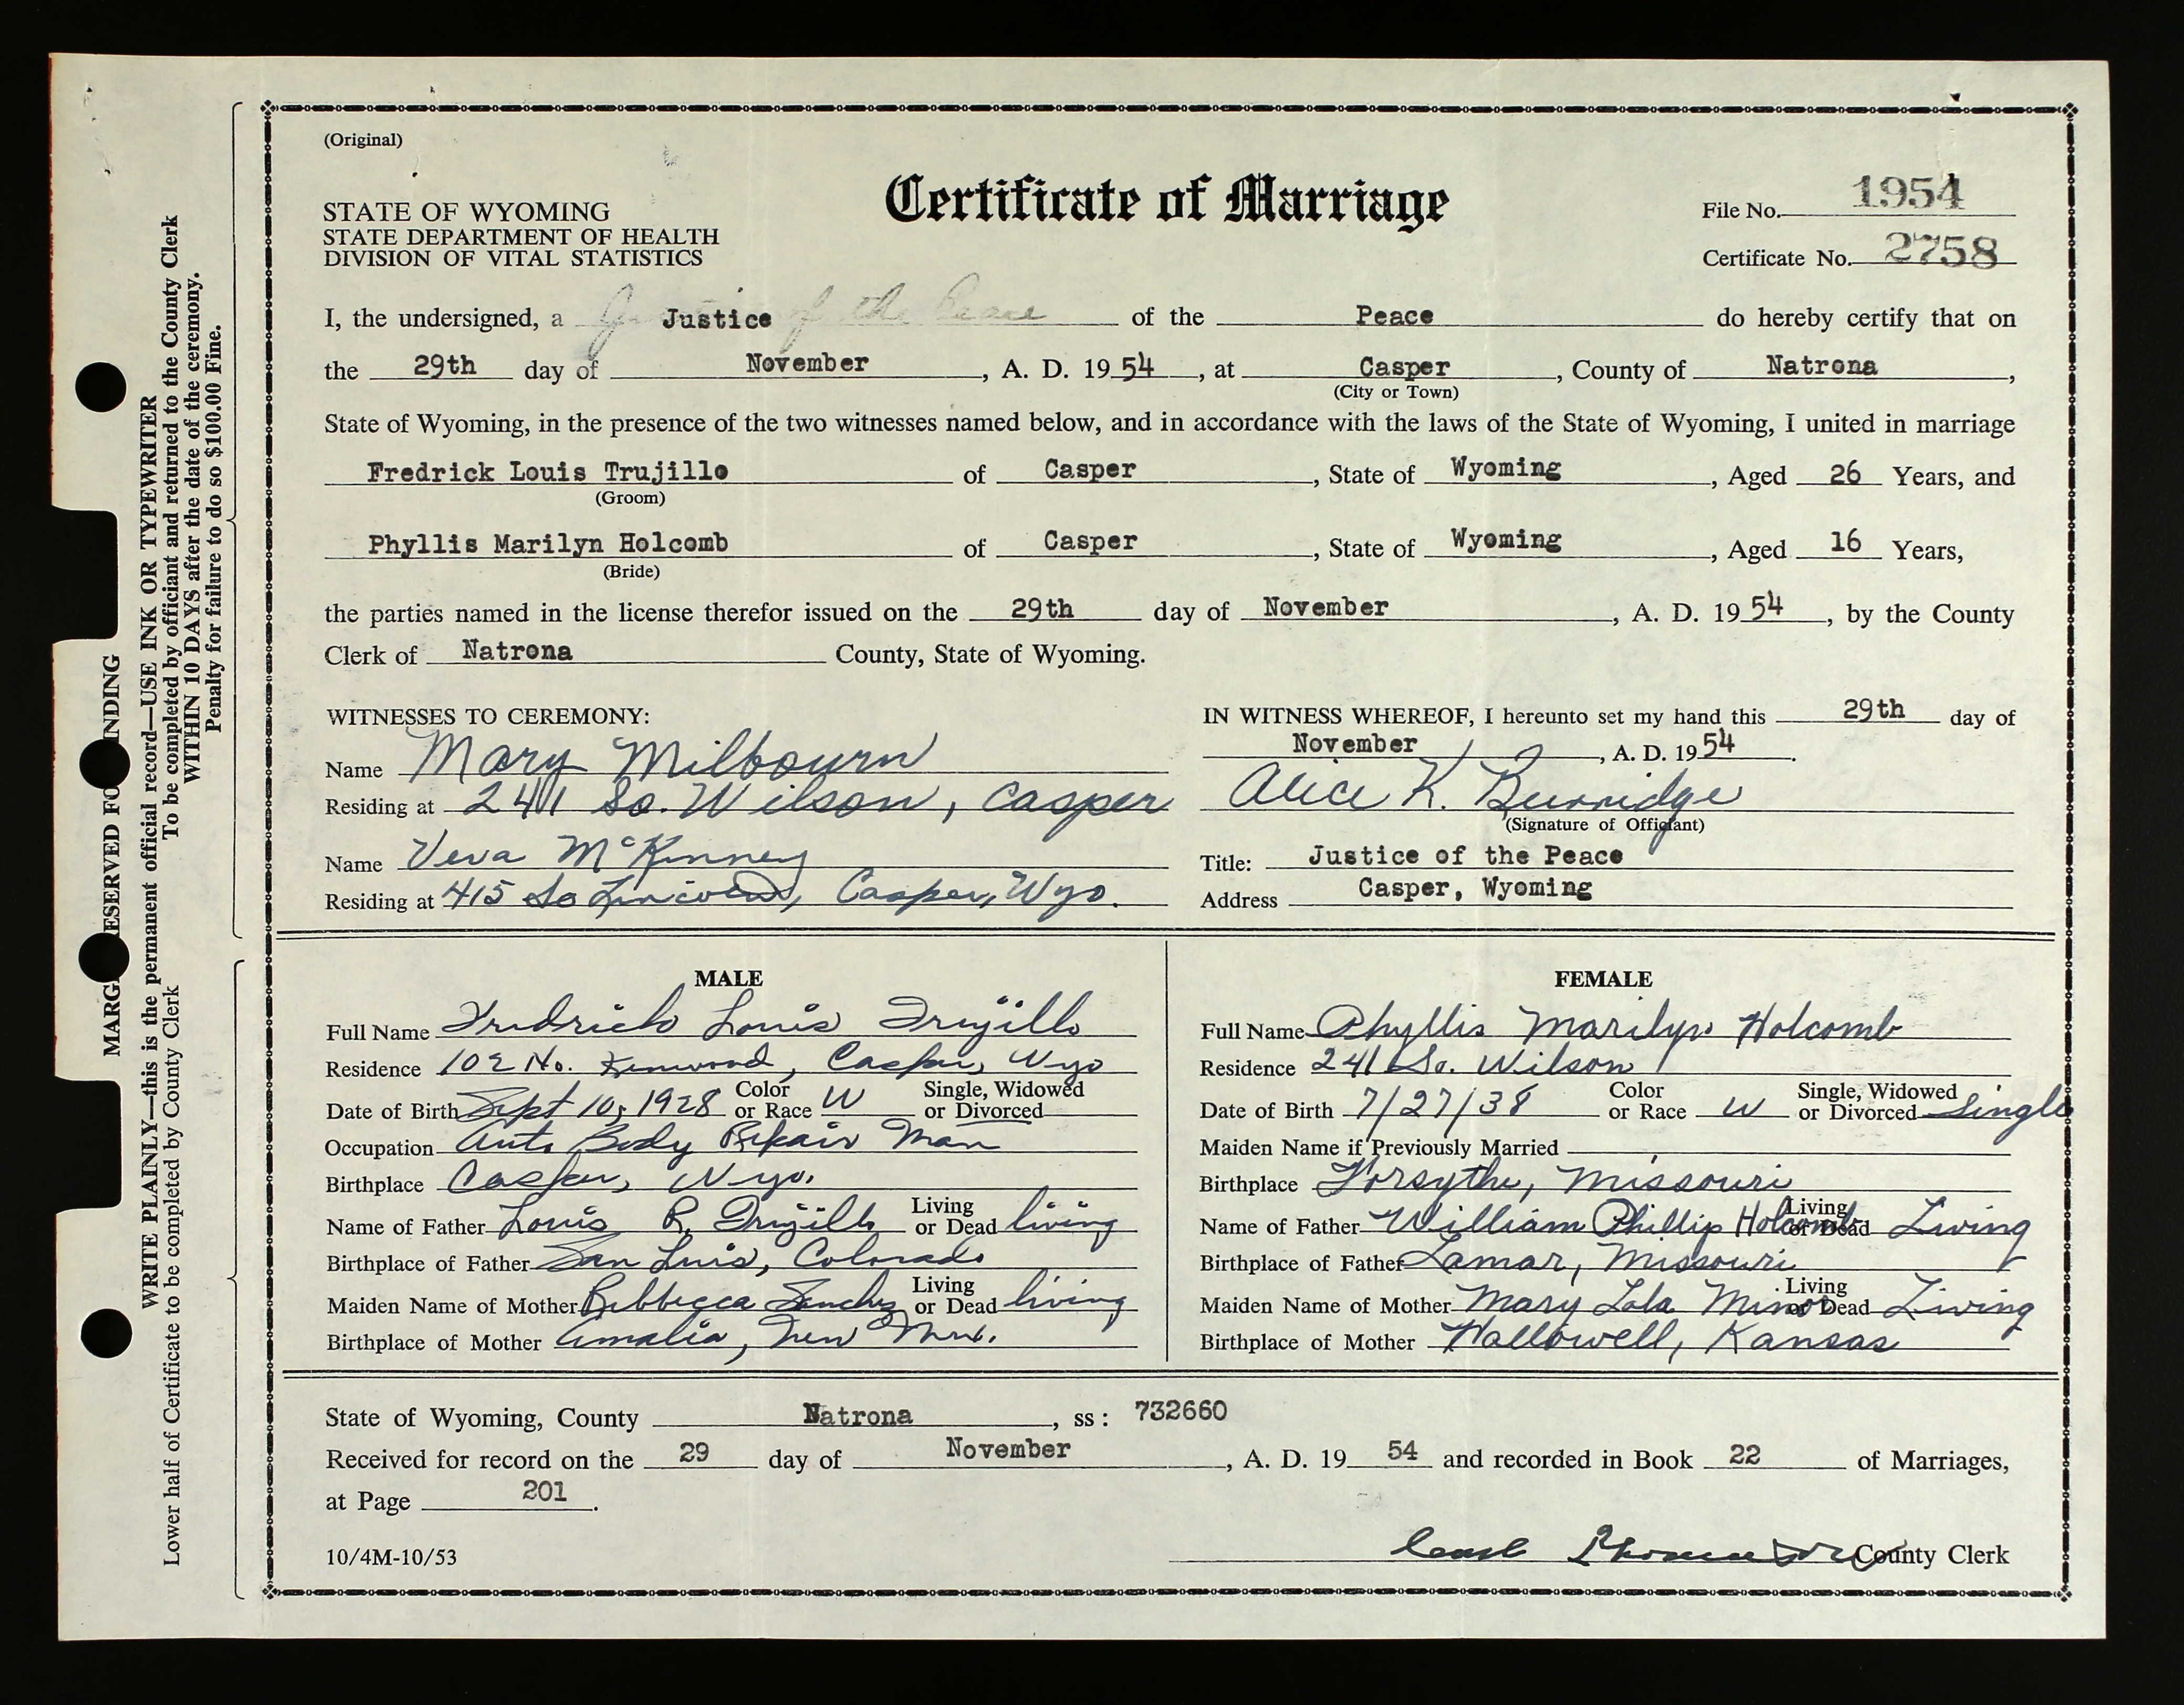 (Original)
Certificate of Marriage
STATE OF WYOMING
STATE DEPARTMENT OF HEALTH
DIVISION OF VITAL STATISTICS
File No. 1954
Certificate No. 2758
I, the undersigned, a Justice of the Peace do hereby certify that on
the 29th day of November, A. D. 19 54, at Casper, County of Natrona,
(City or Town)
State of Wyoming, in the presence of the two witnesses named below, and in accordance with the laws of the State of Wyoming, I united in marriage
Fredrick Louis Trujillo of Casper, State of Wyoming, Aged 26 Years, and
(Groom)
Phyllis Marilyn Holcomb of Casper, State of Wyoming, Aged 16 Years,
(Bride)
the parties named in the license therefor issued on the 29th day of November, A. D. 19 54, by the County
Clerk of Natrona County, State of Wyoming.
WITNESSES TO CEREMONY:
Name Mary Milbourn
Residing at 241 So. Wilson, Casper
Name Veva McKinney
Residing at 415 So Lincoln, Casper, Wyo.
IN WITNESS WHEREOF, I hereunto set my hand this 29th day of
November, A. D. 19 54.
Alice K. Burridge
(Signature of Officiant)
Title: Justice of the Peace
Address Casper, Wyoming
MALE
Full Name Fredrick Louis Trujillo
Residence 102 No. Kenwood, Casper, Wyo
Date of Birth Sept 10, 1928 Color or Race W Single, Widowed or Divorced
Occupation Auto Body Repair Man
Birthplace Casper, Wyo.
Name of Father Louis R. Trujillo Living or Dead living
Birthplace of Father San Luis, Colorado
Maiden Name of Mother Rebbecca Sanchez Living or Dead living
Birthplace of Mother Amalia, New Mex.
FEMALE
Full Name Phyllis Marilyn Holcomb
Residence 241 So. Wilson
Date of Birth 7/27/38 Color or Race W Single, Widowed or Divorced Single
Maiden Name if Previously Married
Birthplace Forsythe, Missouri
Name of Father William Phillip Holcomb Living or Dead Living
Birthplace of Father Lamar, Missouri
Maiden Name of Mother Mary Lola Minor Living or Dead Living
Birthplace of Mother Hallowell, Kansas
State of Wyoming, County Natrona, ss: 732660
Received for record on the 29 day of November, A. D. 19 54 and recorded in Book 22 of Marriages,
at Page 201.
10/4M-10/53
County Clerk
MARG ESERVED FO INDING
WRITE PLAINLY—this is the permanent official record—USE INK OR TYPEWRITER
To be completed by officiant and returned to the County Clerk
WITHIN 10 DAYS after the date of the ceremony.
Penalty for failure to do so $100.00 Fine.
Lower half of Certificate to be completed by County Clerk